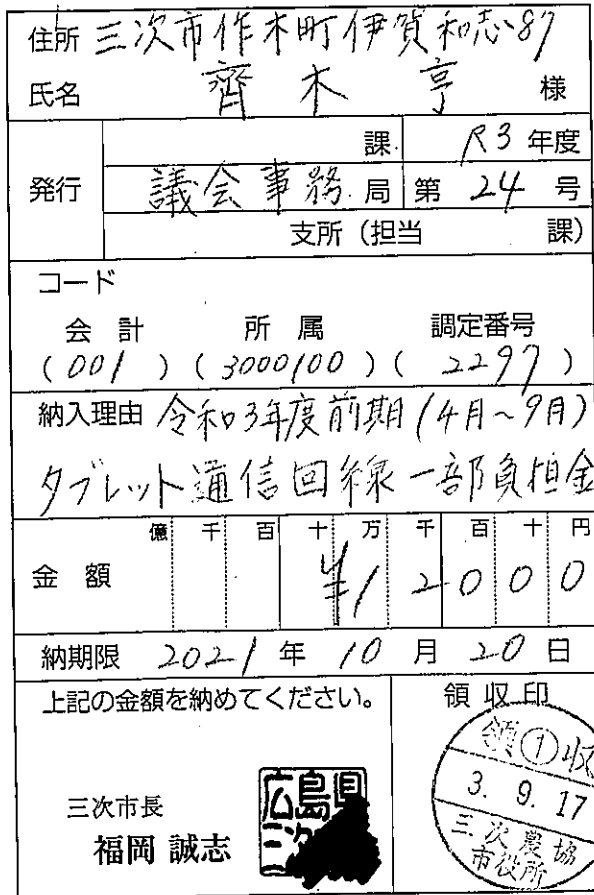 住所 三次市作木町伊賀和志87
氏名 齊木 亨 様
発行
課 R3 年度
議会事務 局 第 24 号
支所(担当 課)
コード
会計 所属 調定番号
(001)(3000100)(2297)
納入理由 令和3年度前期(4月~9月)
タブレット通信回線一部負担金
億 千 百 十 万 千 百 十 円
金額 ¥12000
納期限 2021 年 10 月 20 日
上記の金額を納めてください。
領収印
三次市長
福岡 誠志
広島県
三次
領①収
3. 9. 17
三次農協
市役所